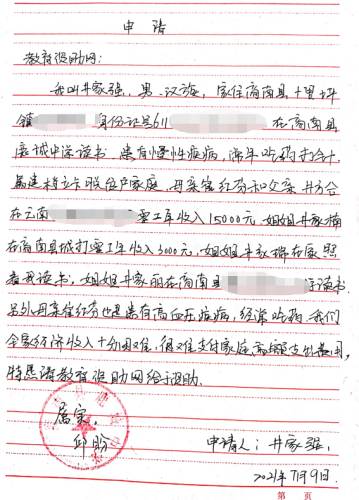 申请
教育资助网:
我叫井家强,男,汉族,家住商南县十里坪
镇 身份证号611 在商南县
鹿城中学读书,患有慢性疾病,常年吃药打针,
属建档立卡贫困户家庭,母亲程红芬和父亲井方合
在云南 零工年收入15000元,姐姐井家楠
在商南县城打零工年收入3000元,姐姐井家瑞在家照
看我读书,姐姐井家丽在商南县 读书
另外母亲程红芬也患有高血压疾病,经常吃药,我们
全家经济收入十分困难,很难支付家庭高额支出费用,
特恳请教育资助网给予资助。
属实。
邱盼
申请人:井家强。
2021年7月9日.
第 页